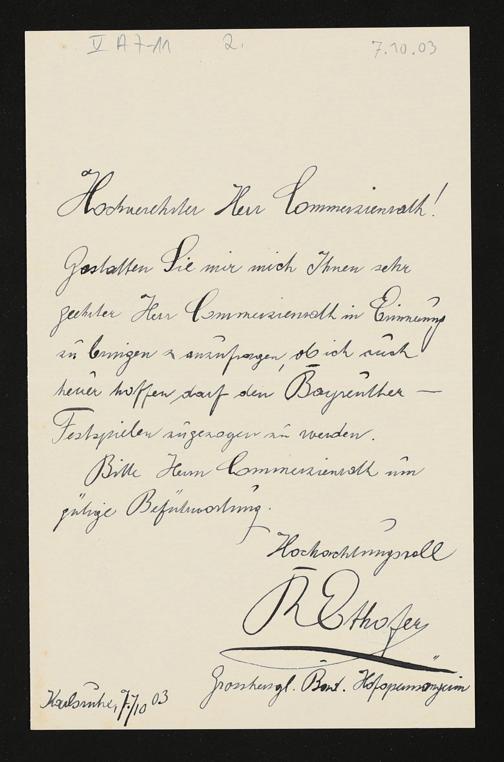 V A 7-11 2. 7.10.03
Hochverehrter Herr Commerzienrath!
Gestatten Sie mir mich Ihnen sehr
geehrter Herr Commerzienrath in Erinnerung
zu bringen & anzufragen, ob ich auch
heuer hoffen darf den Bayreuther-
Festspielen zugezogen zu werden.
Bitte Herrn Commerzienrath um
gütige Befürwortung.
Hochachtungsvoll
Th Ethofer
Grossherzgl. Bad. Hofopernsängerin
Karlsruhe, 7./10 03